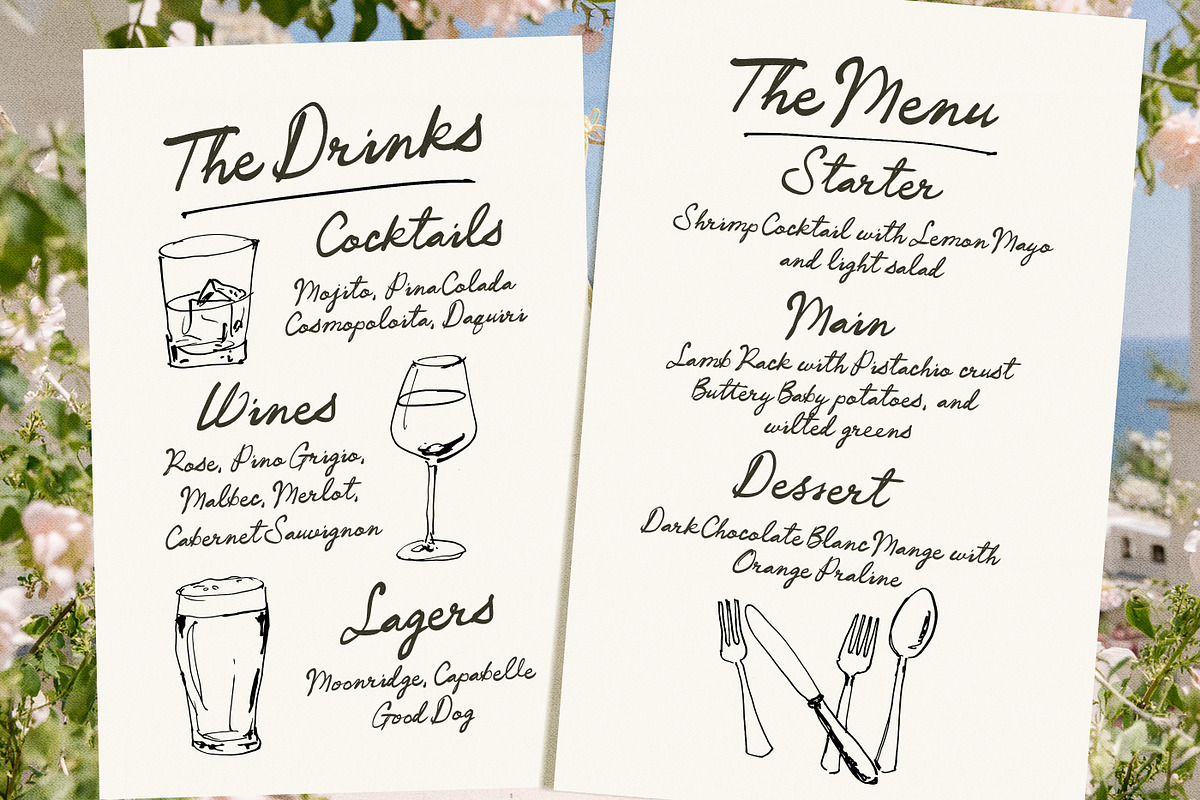 The Drinks
Cocktails
Mojito, Pina Colada
Cosmopoloita, Daquiri
Wines
Rose, Pino Grigio,
Malbec, Merlot,
Cabernet Sauvignon
Lagers
Moonridge, Capabelle
Good Dog
The Menu
Starter
Shrimp Cocktail with Lemon Mayo
and light salad
Main
Lamb Rack with Pistachio crust
Buttery Baby potatoes, and
wilted greens
Dessert
Dark Chocolate Blanc Mange with
Orange Praline